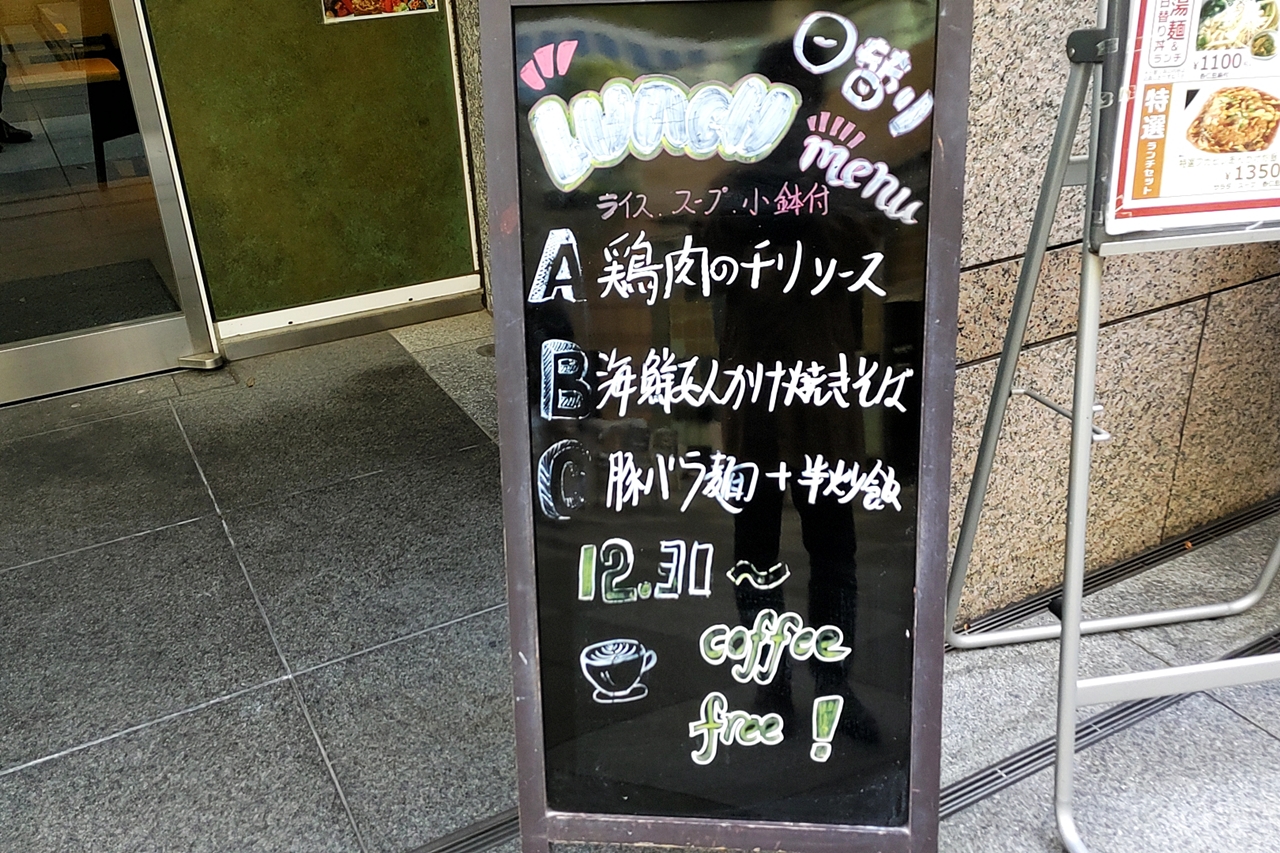 LUNCH
日替り
menu
ライス.スープ.小鉢付
A 鶏肉のチリソース
B 海鮮あんかけ焼きそば
C 豚バラ麺+半炒飯
12.31 ~
coffee
free !
湯麺&
日替り丼
ランチ
¥1100
特選
ランチセット
¥1350